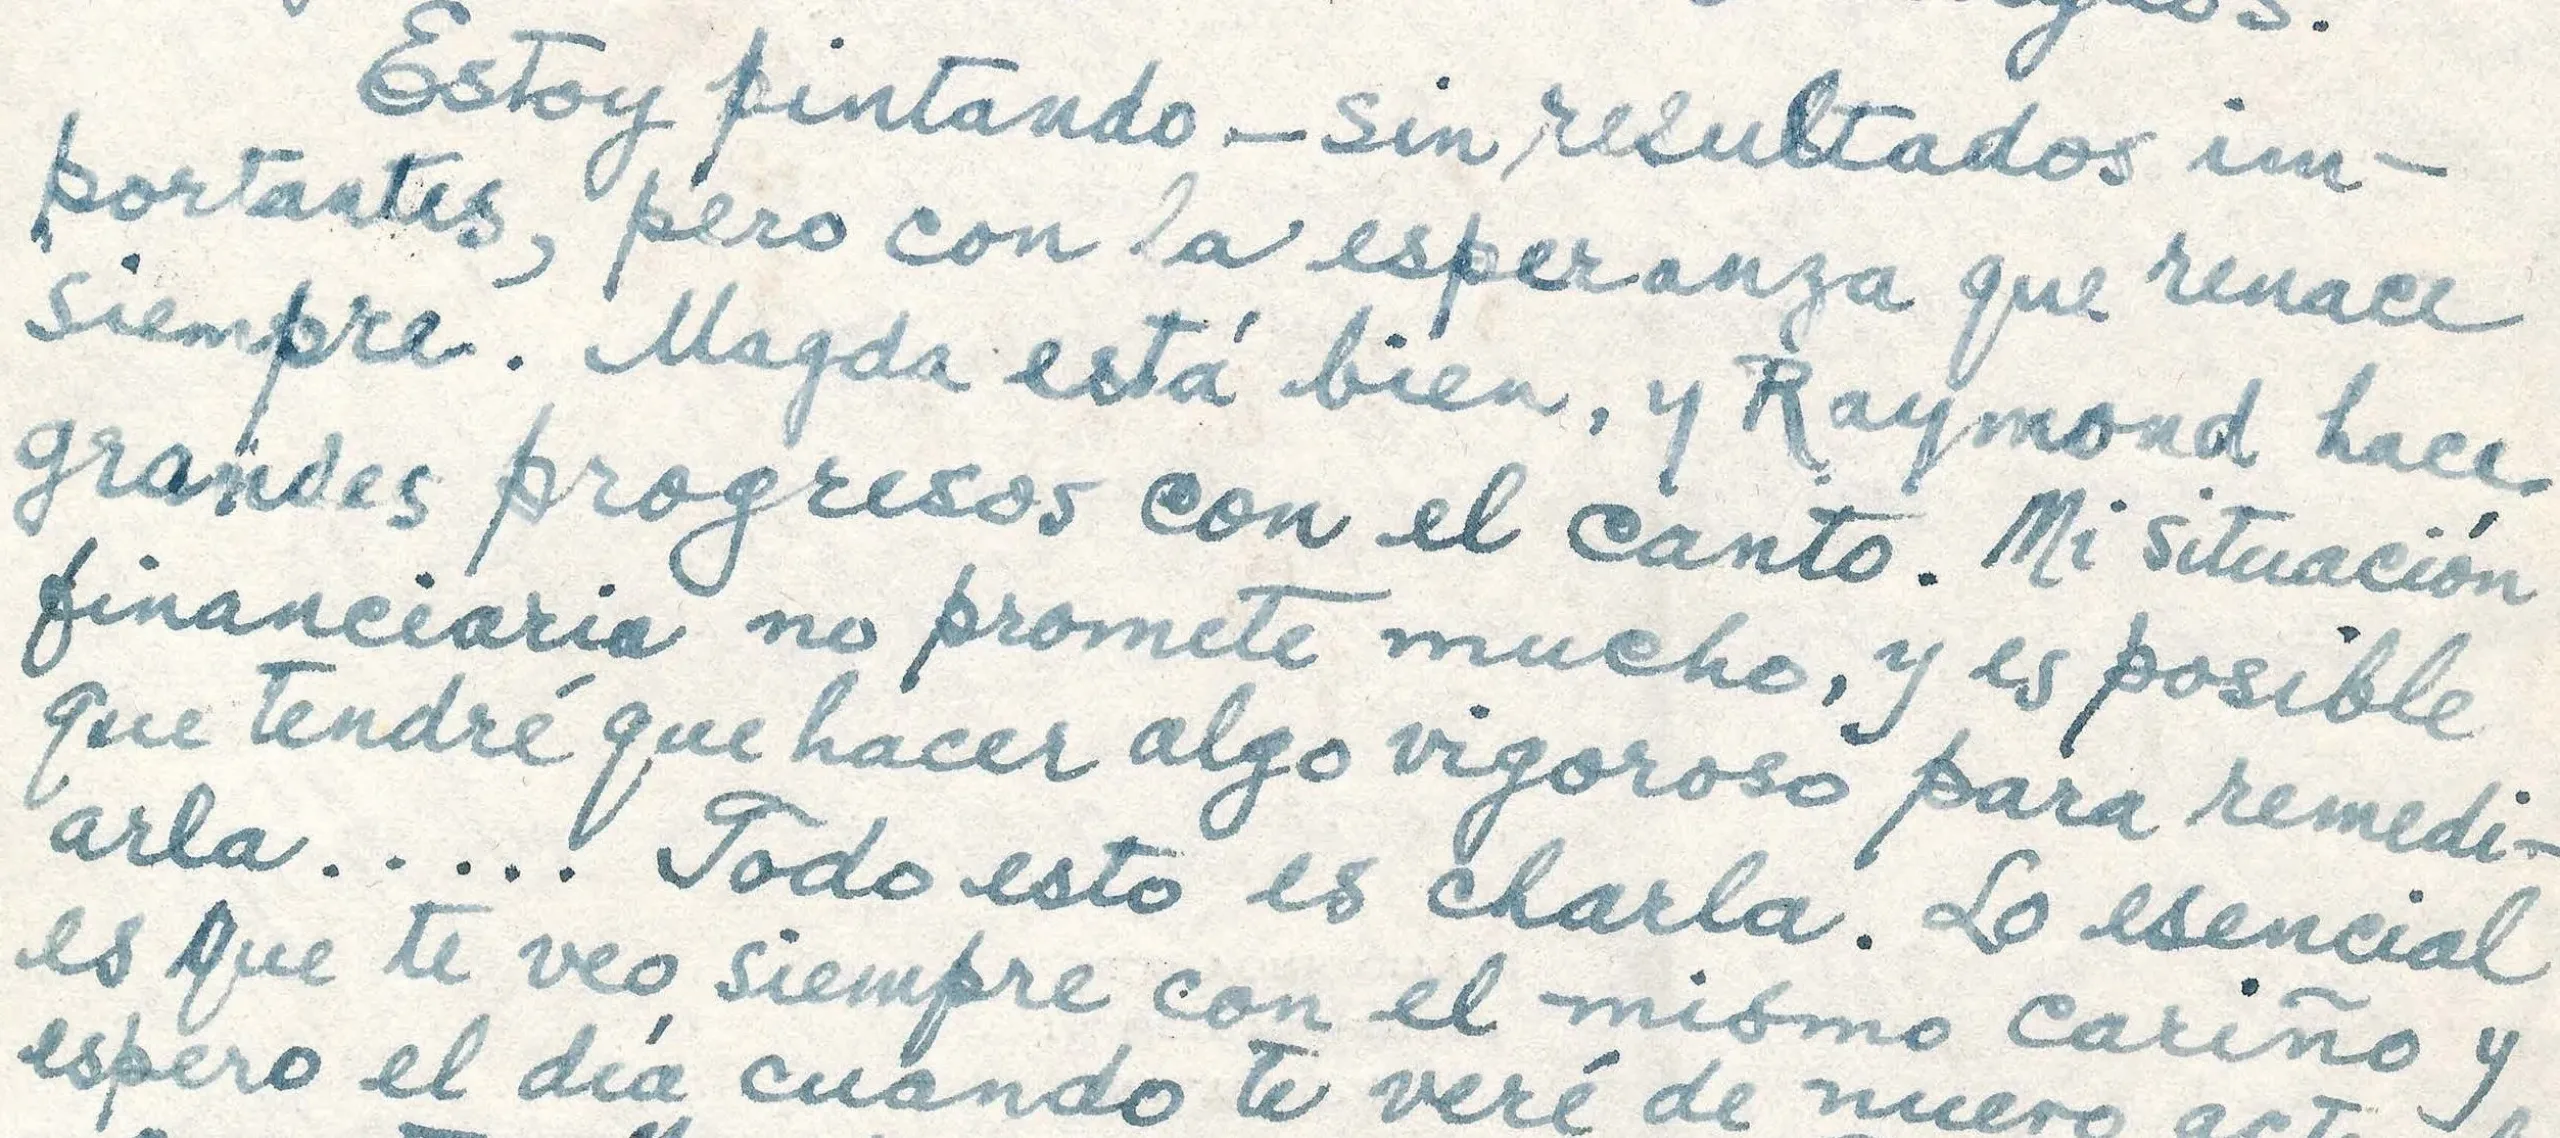 Estoy pintando — sin resultados im-
portantes, pero con la esperanza que renace
siempre. Magda está bien, y Raymond hace
grandes progresos con el canto. Mi situación
financiaria no promete mucho, y es posible
que tendré que hacer algo vigoroso para remedi-
arla...... Todo esto es charla. Lo esencial
es que te veo siempre con el mismo cariño y
espero el día cuando te veré de nuevo